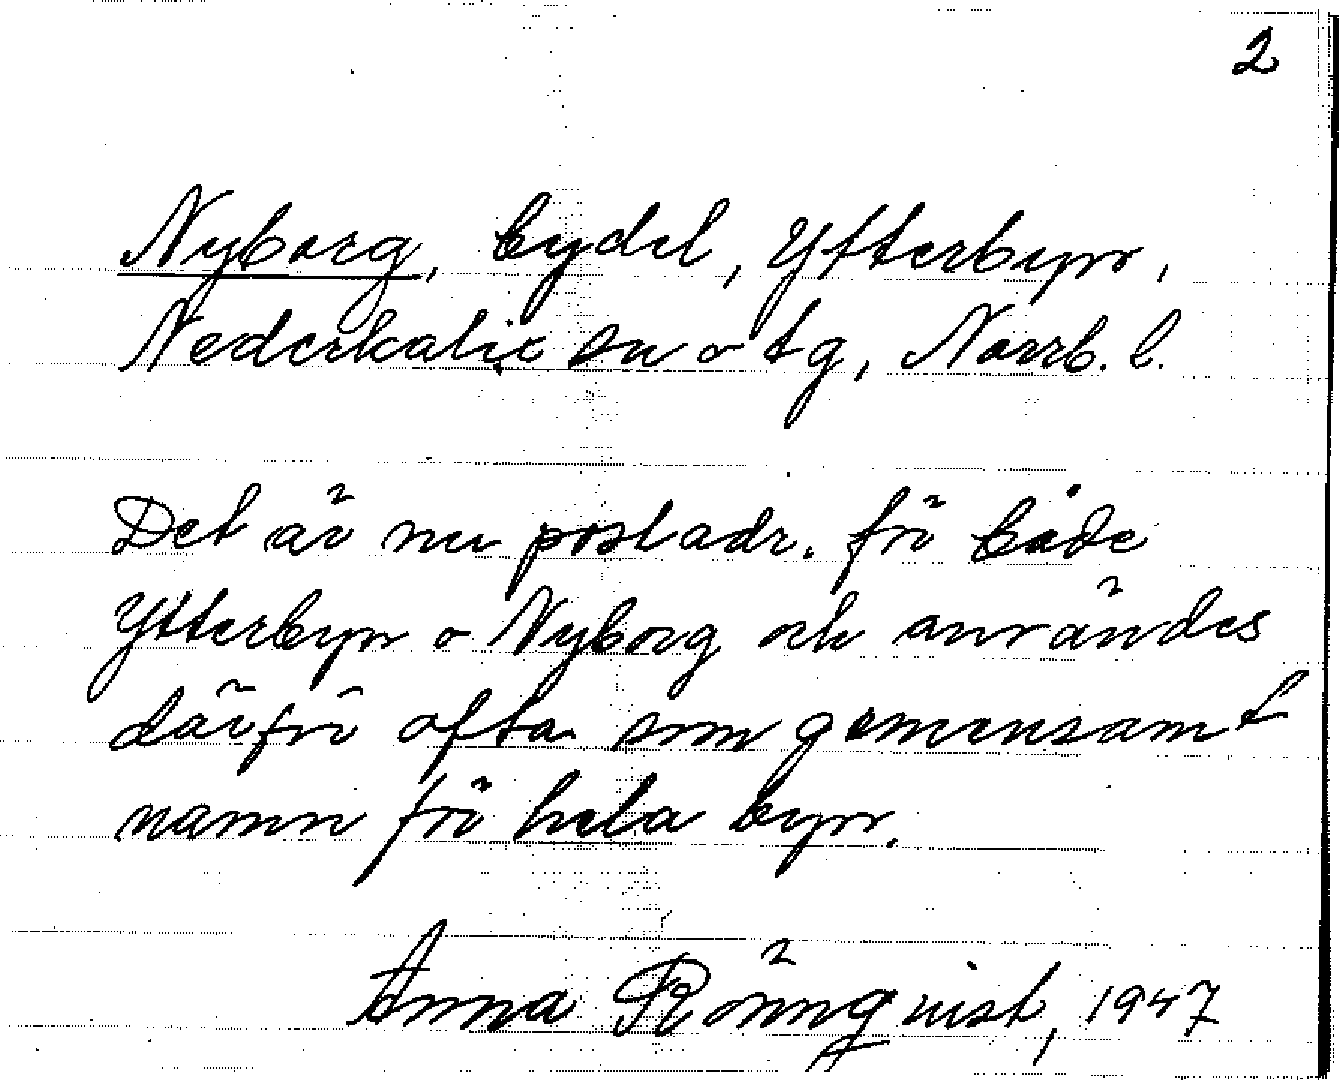 2
Nyborg, bydel, Ytterbyn,
Nederkalix sn o tg, Norrb. l.
Det är nu postadr. för både
Ytterbyn o Nyborg och användes
därför ofta som gemensamt
namn för hela byn.
Anna Rönnqvist, 1947